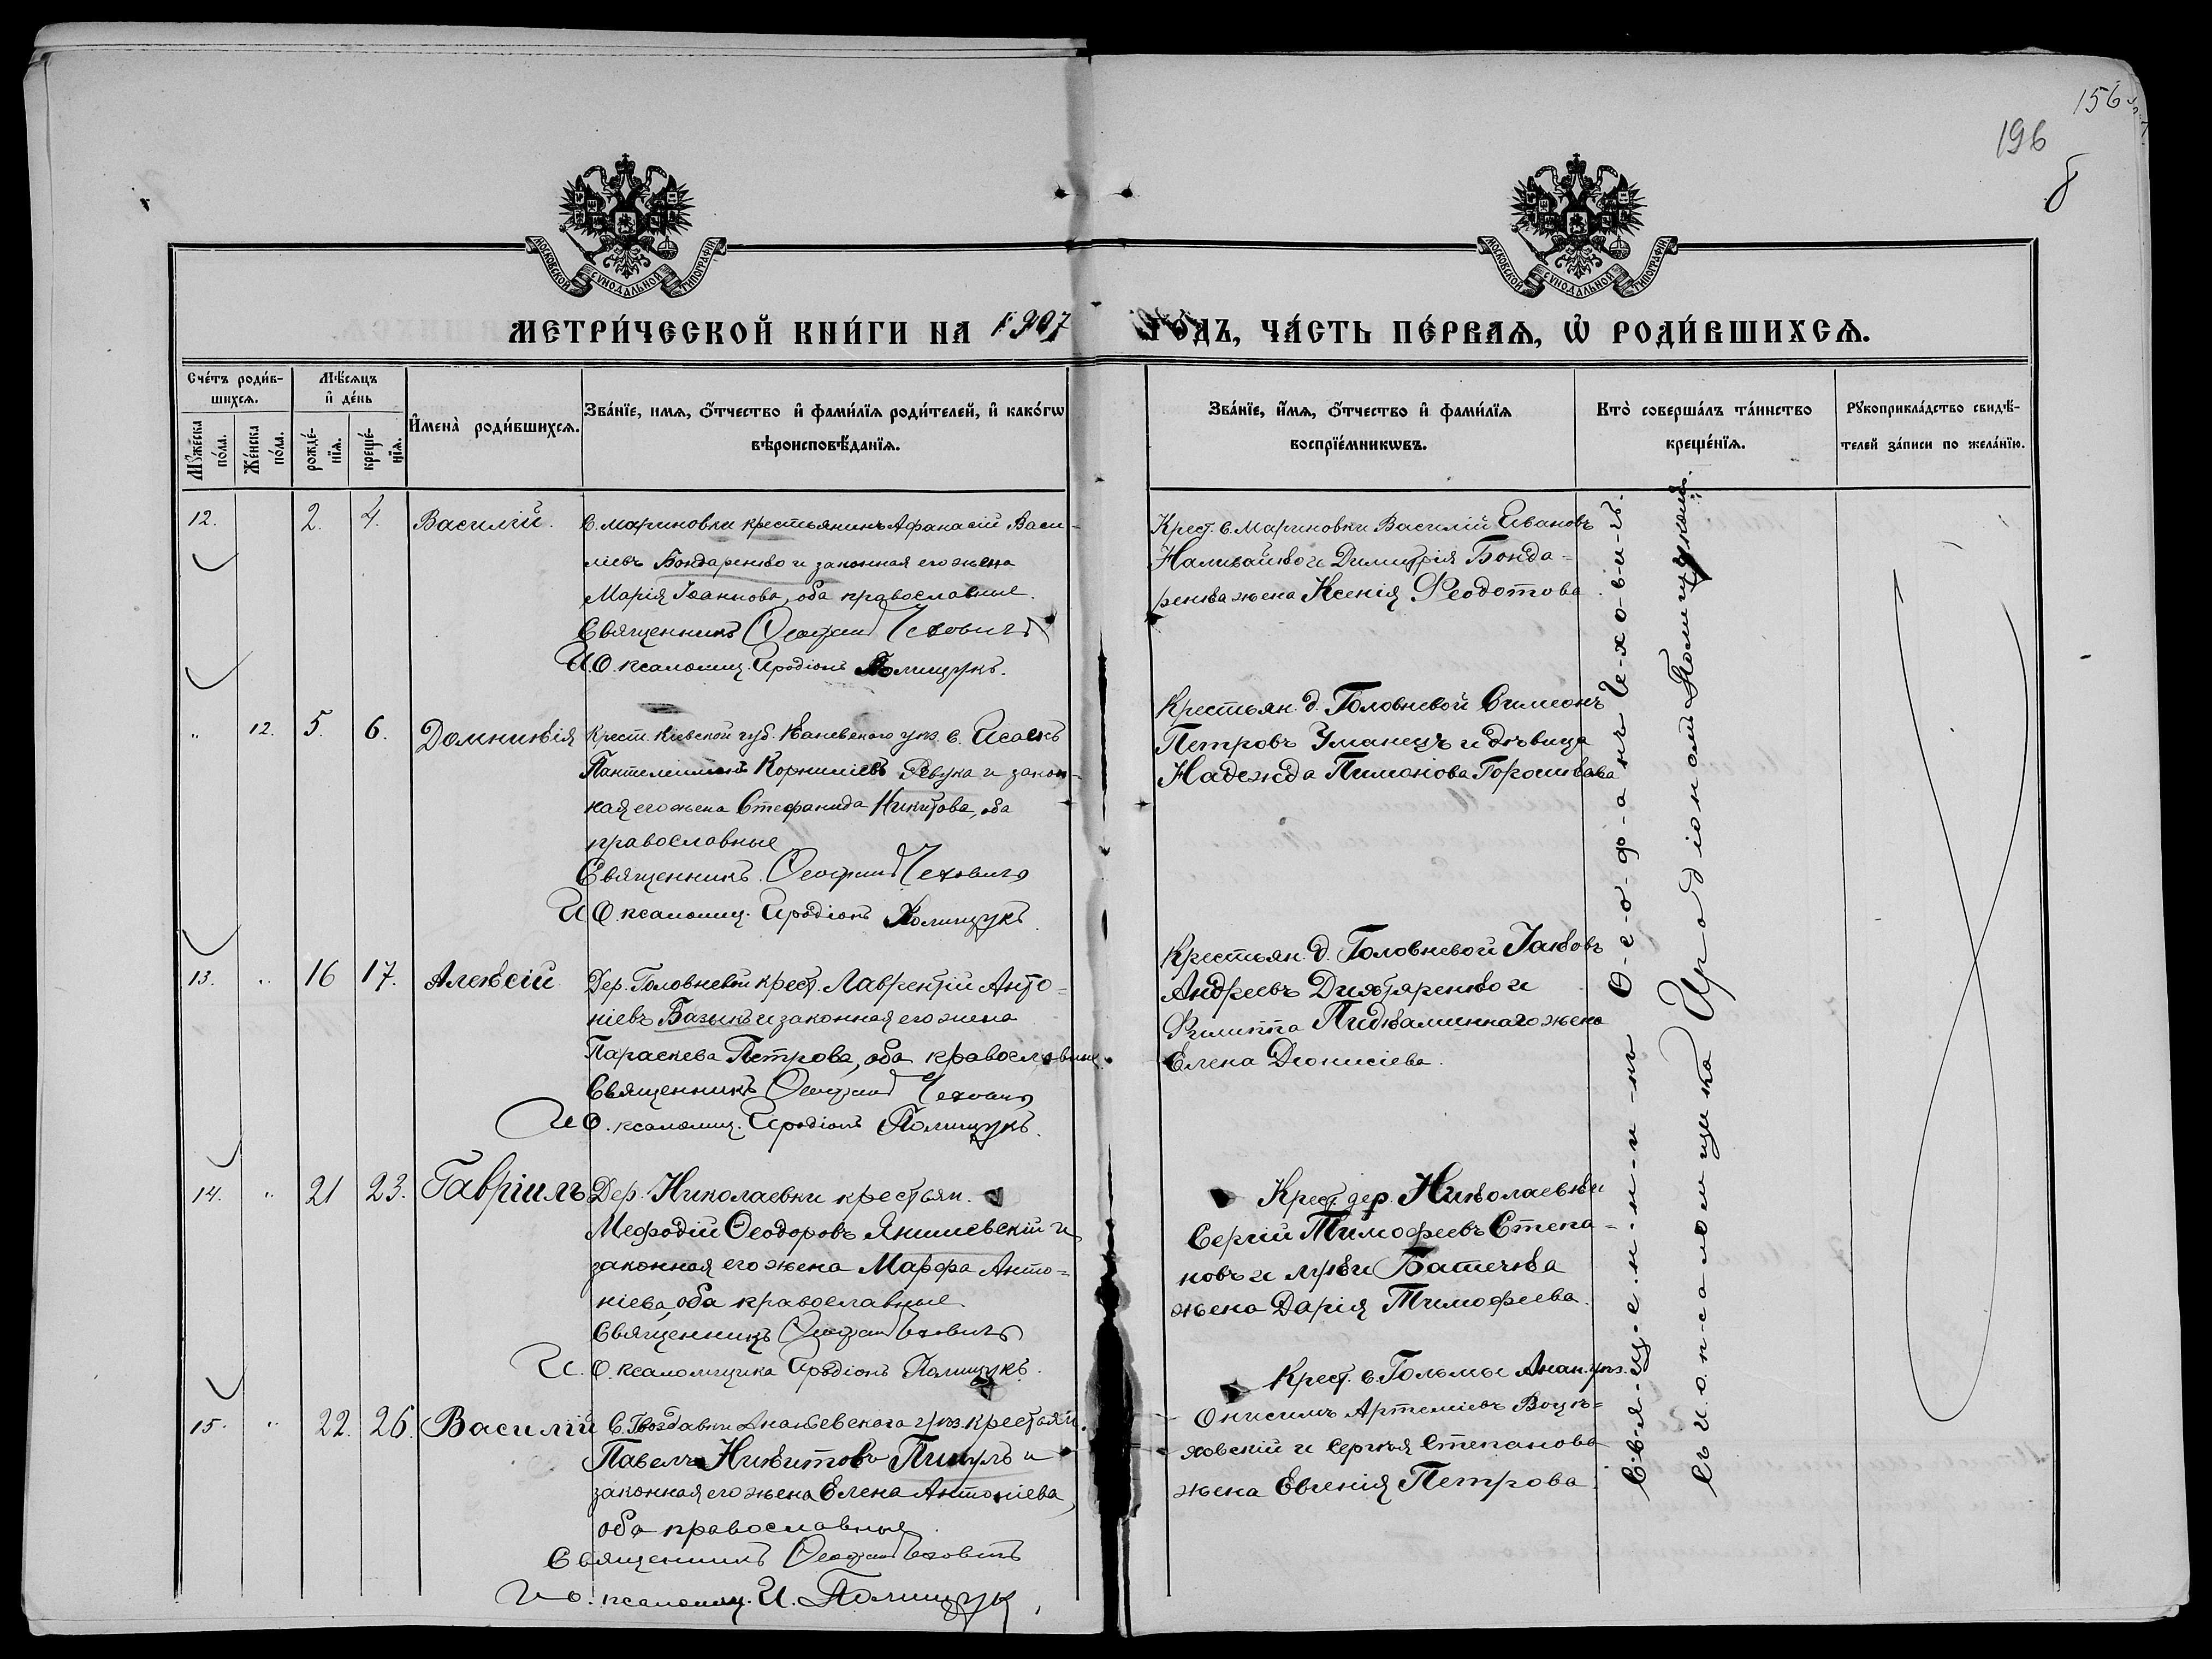 156
196
8
МОСКОВСКОЙ СѴНОДАЛЬНОЙ ТИПОГРАФІИ
МОСКОВСКОЙ СѴНОДАЛЬНОЙ ТИПОГРАФІИ
МЕТРИ́ЧЕСКОЙ КНИ́ГИ НА 1907 ГОДЪ, ЧА́СТЬ ПЕ́РВАѦ, Ѡ҆ РОДИ́ВШИХСѦ.
Сче́тъ роди́в-
шихсѧ.
Мѣ́сѧцъ
и҆ де́нь
Мꙋ́жеска
по́ла.
Же́нска
по́ла.
рожде́-
нїѧ.
креще́-
нїѧ.
И҆мена̀ роди́вшихсѧ.
Зва́нїе, имѧ, ѻ҆́тчество и҆ фами́лїѧ роди́телей, и҆ како́гѡ
вѣроисповѣ́данїѧ.
Зва́нїе, и҆́мѧ, ѻ҆́тчество и҆ фами́лїѧ
воспрїе́мникѡвъ.
Кто̀ соверша́лъ та́инство
креще́нїѧ.
Рꙋкоприкла́дство свидѣ́-
телей за́писи по жела́нїю.
12. 2. 4. Василій.
С. Мариновки крестьянинъ Афанасій Васи-
ліевъ Бондаренко и законная его жена
Марія Іоаннова, оба православные.
Священникъ Ѳеофанъ Чеховичъ
И.О. псаломщ. Иродіонъ Полищукъ.
Крест. с. Мариновки Василій Ивановъ
Наливайко и Димитрія Бонда-
ренка жена Ксенія Ѳеодотова.
" 12. 5. 6. Домникія
Крест. Кіевской губ. Каневскаго уѣз. с. Исаекъ
Пантелиимонъ Корниліевъ Ревука и закон-
ная его жена Стефанида Никитова, оба
православные
Священникъ Ѳеофанъ Чеховичъ
И О. псаломщ. Иродіонъ Полищукъ.
Крестьян. д. Головневой Симеонъ
Петровъ Уманецъ и дѣвица
Надежда Пимонова
13. " 16 17. Алексій
Дер. Головневой крест. Лаврентій Анто-
ніевъ Базыкъ и законная его жена
Параскева Петрова, оба православные.
Священникъ Ѳеофанъ Чеховичъ
И О. псаломщ. Иродіонъ Полищукъ.
Крестьян. д. Головневой Іаковъ
Андреевъ Дихтяренко и
Филиппа Пидкаминнаго жена
Елена Діонисіева.
14. " 21 23. Гавріилъ
Дер. Николаевки крестьян.
Мефодій Ѳеодоровъ Янишевскій и
законная его жена Марфа Анто-
ніева, оба православные.
Священникъ Ѳеофанъ Чеховичъ
И. О. псаломщика Иродіонъ Полищукъ.
Крест. дер. Николаевки
Сергій Тимофеевъ Степа-
новъ и Луки
жена Дарія Тимофеева.
15. " 22. 26. Василій
С. Гвоздавки Ананьевскаго уѣз. крестьян.
Павелъ Никитовъ и
законная его жена Елена Антоніева,
оба православные.
Священникъ Ѳеофанъ Чеховичъ
И О. псаломщ. И. Полищук
Крест. с. Гольмы Анан. уѣз.
Онисимъ Артеміевъ Воцѣ-
ховскій и Сергія Степанова
жена Евгенія Петрова.
С-в-я-щ-е-н-н-и-къ Ѳ-е-о-ф-а-нъ Ч-е-х-о-в-и-чъ.
Съ и.о. псаломщика Иродіономъ Полищукомъ.